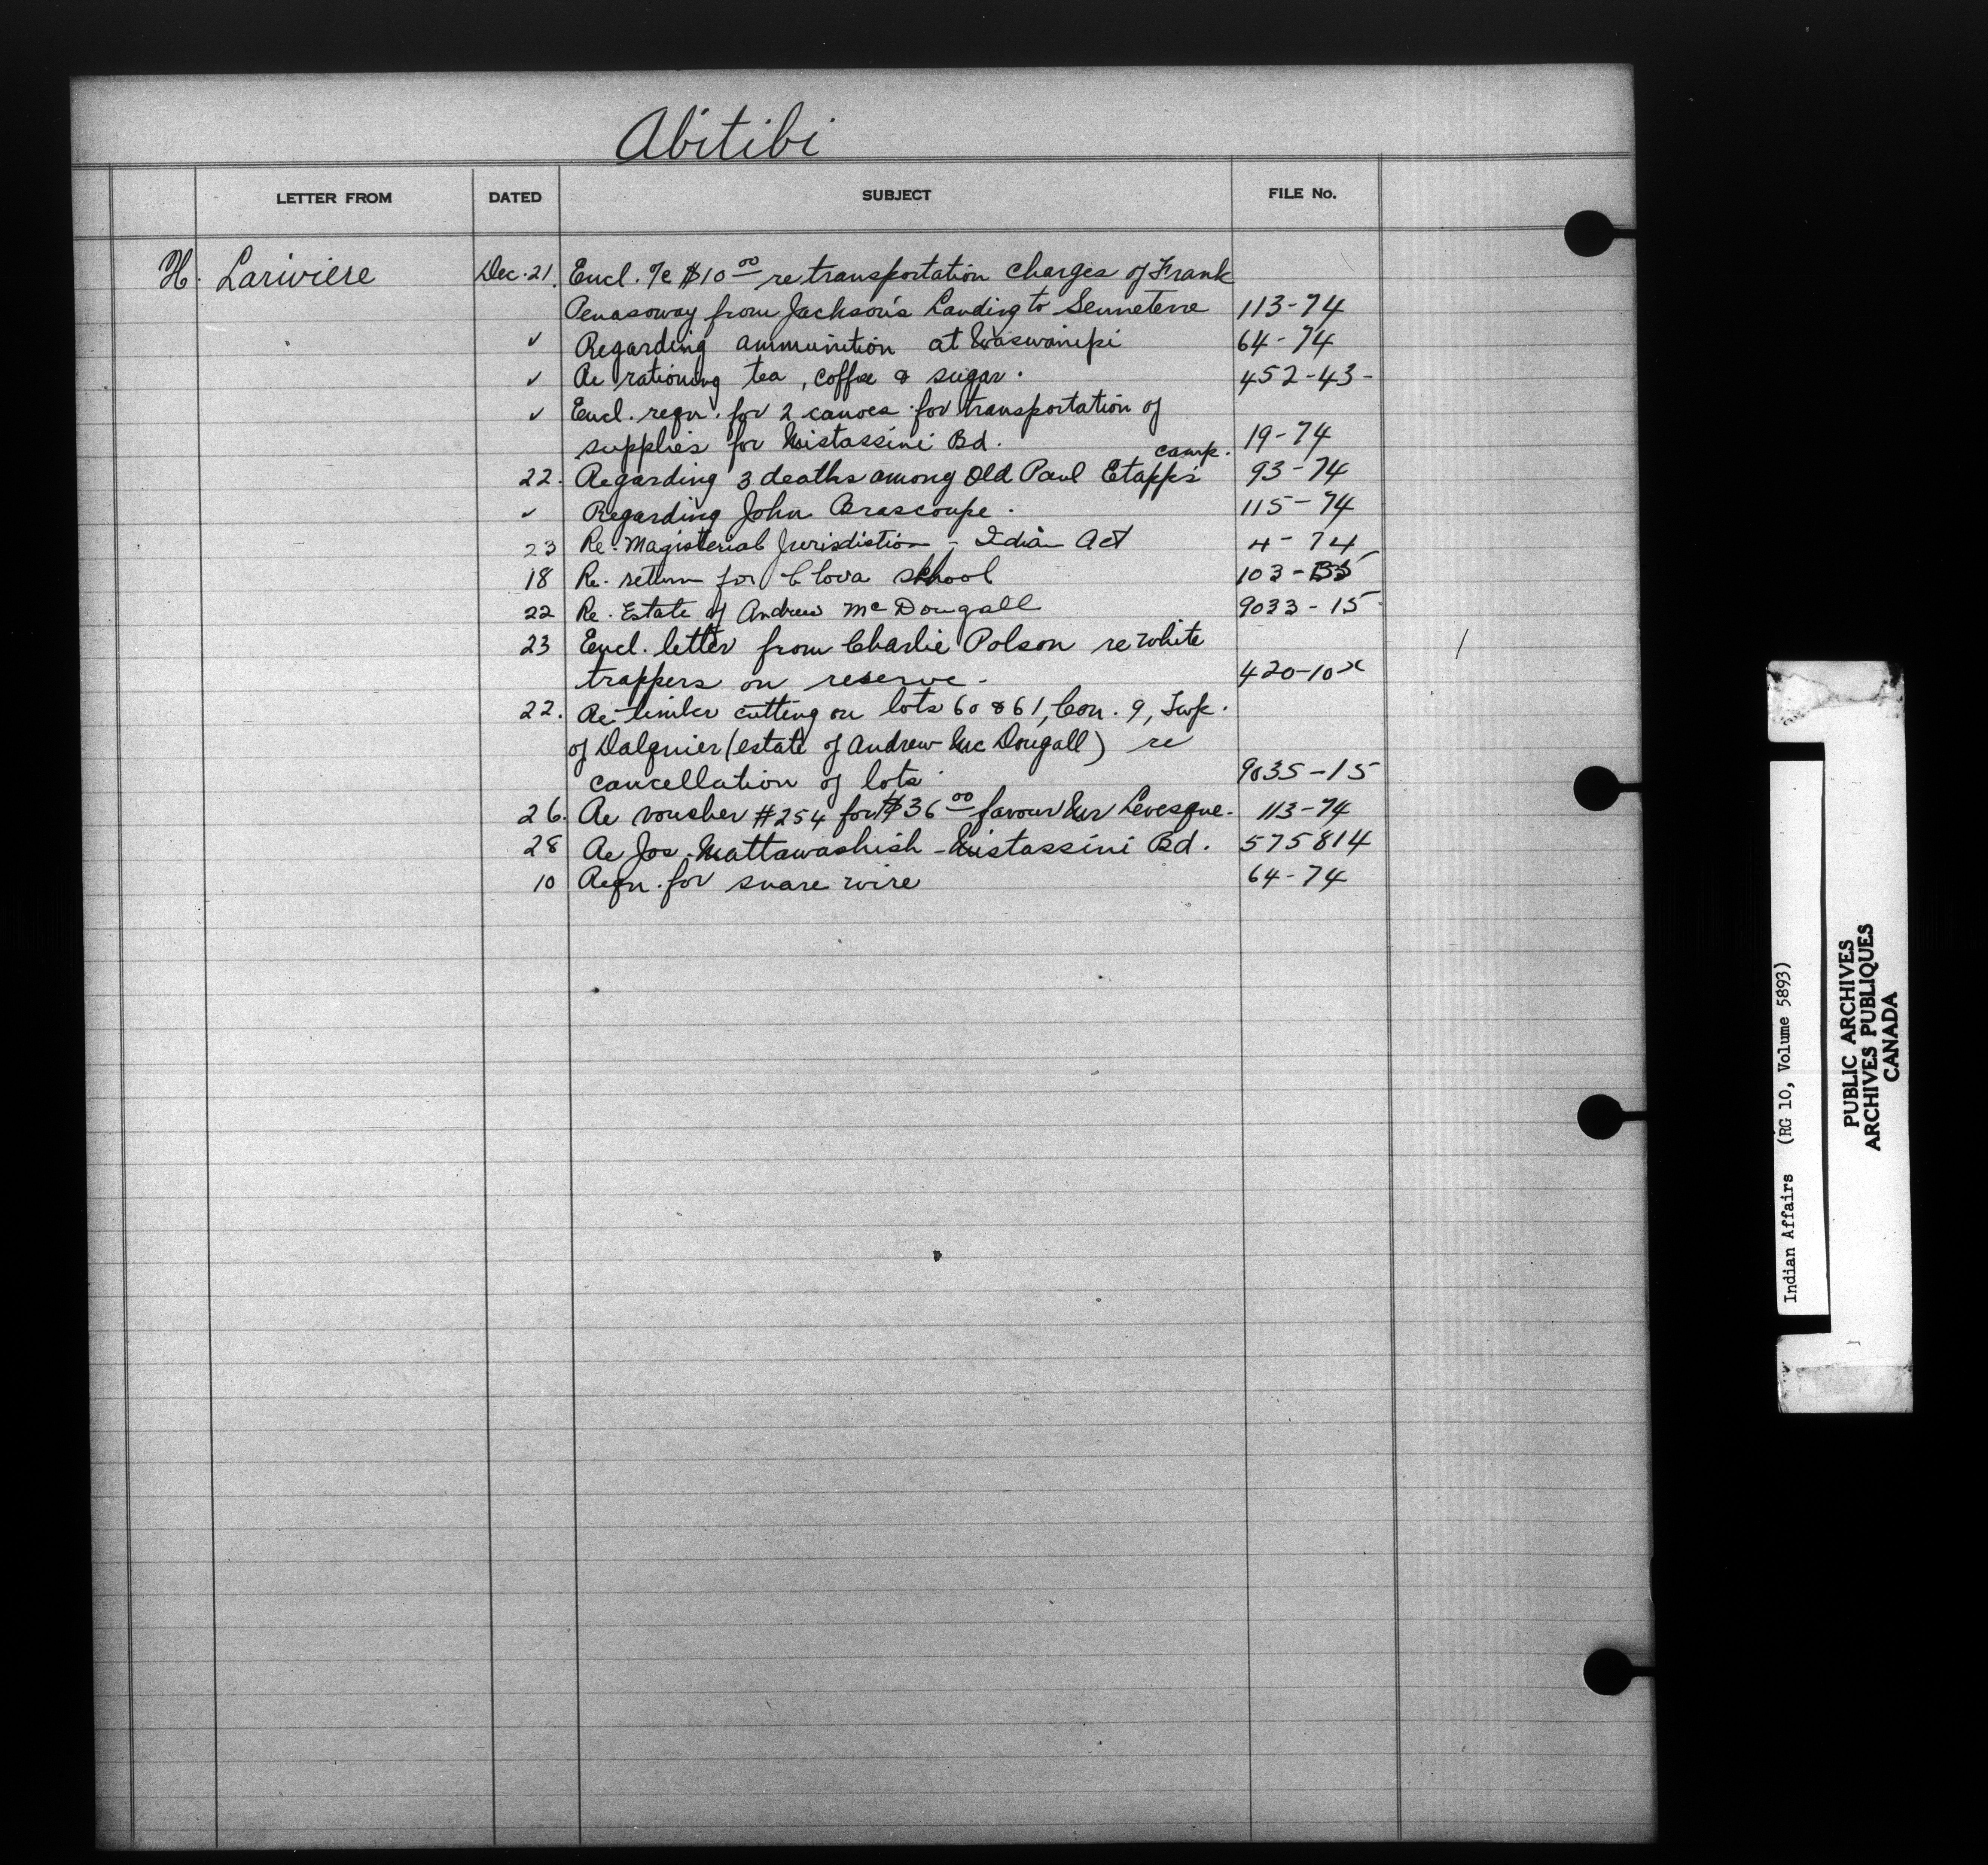 Abitibi
LETTER FROM DATED SUBJECT FILE No.
H. Lariviere Dec. 21. Encl. a/c $10 00 re transportation charges of Frank
Penasoway from Jackson's Landing to Senneterre 113-74
✓ Regarding ammunition at Waswanipi 64-74
✓ Re rationing tea, coffee & sugar. 452-43-
✓ Encl. reqn. for 2 canoes for transportation of
supplies for Mistassini Bd. 19-74
22. Regarding 3 deaths among Old Paul Etapp's camp. 93-74
✓ Regarding John Brascoupe. 115-74
23 Re. Magisterial Jurisdiction - Indian Act 4-74
18 Re. return for Clova school 103-
22 Re. Estate of Andrew McDougall 9033-15
23 Encl. letter from Charlie Polson re white
trappers on reserve - 420-10x
22. Re timber cutting on lots 60 & 61, Con. 9, Twp.
of Dalquier (estate of Andrew McDougall) re
cancellation of lots 9035-15
26. Re voucher #254 for $36 00 favour Mr Levesque. 113-74
28 Re Jos. Mattawashish - Mistassini Bd. 575814
10 Reqn. for snare wire 64-74
Indian Affairs (RG 10, Volume 5893)
PUBLIC ARCHIVES
ARCHIVES PUBLIQUES
CANADA